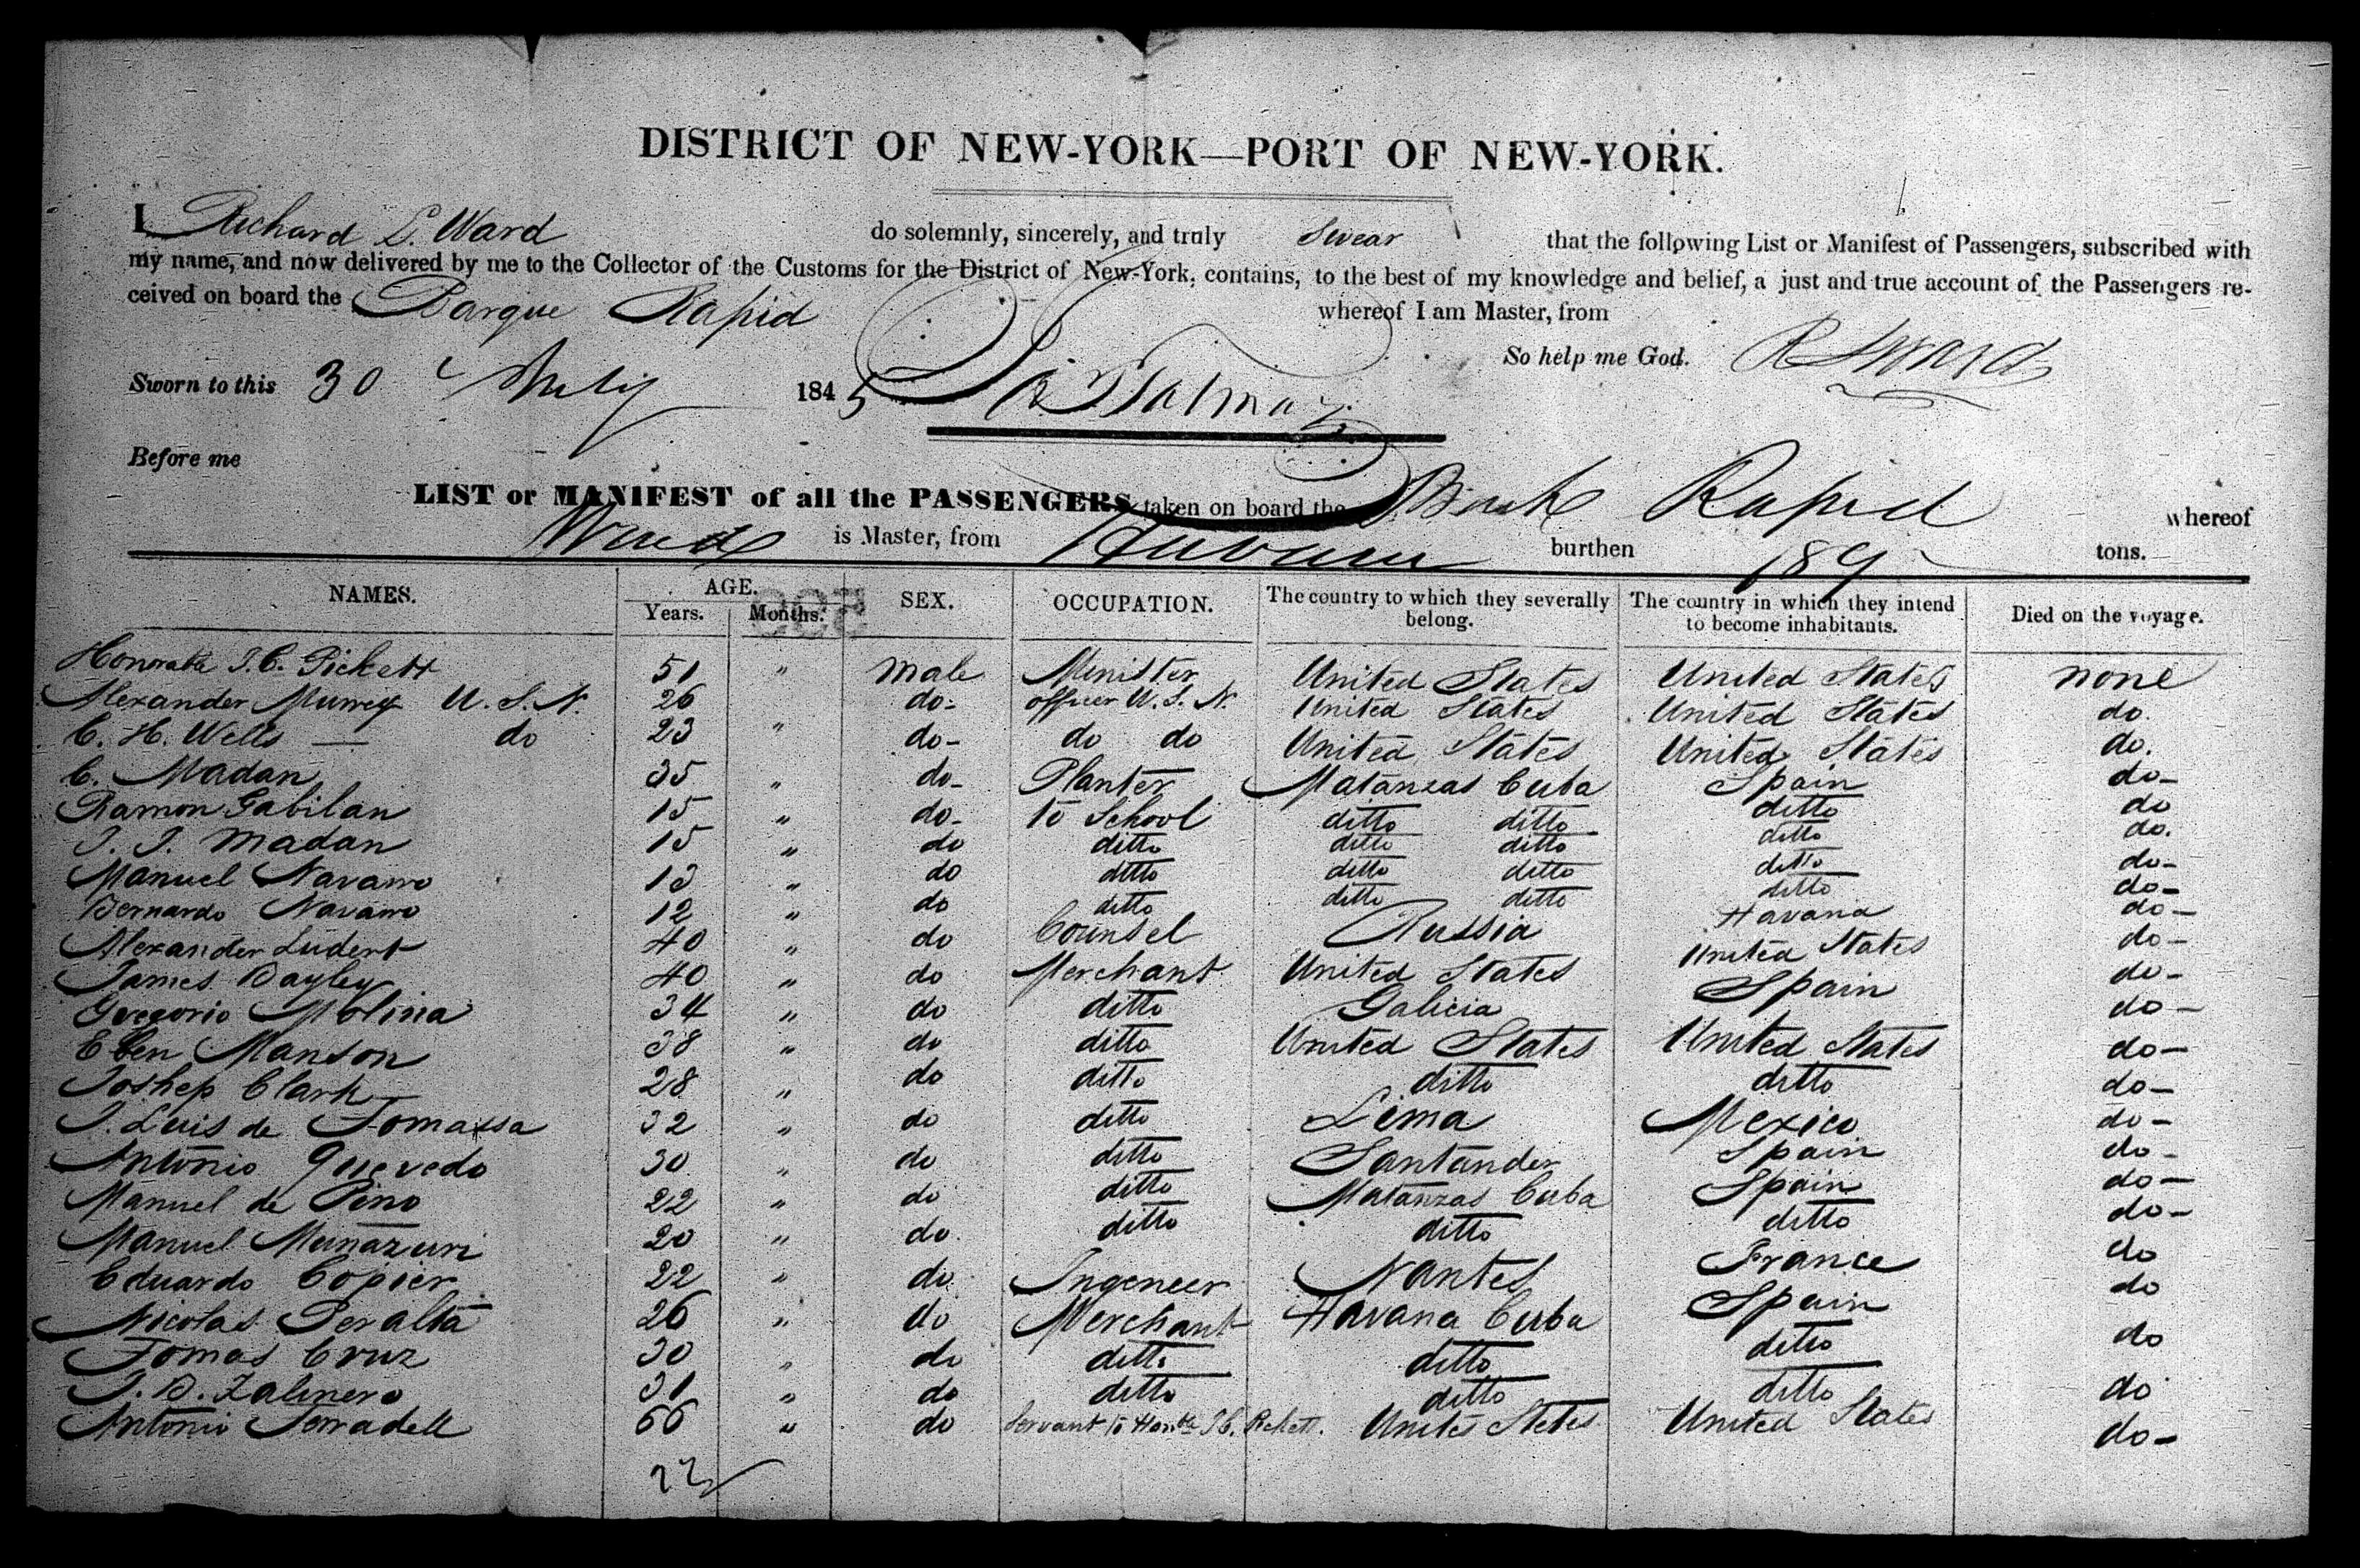 DISTRICT OF NEW-YORK—PORT OF NEW-YORK.
I Richard L. Ward do solemnly, sincerely, and truly Swear that the following List or Manifest of Passengers, subscribed with
my name, and now delivered by me to the Collector of the Customs for the District of New-York, contains, to the best of my knowledge and belief, a just and true account of the Passengers re-
ceived on board the Barque Rapid whereof I am Master, from
So help me God. R L Ward
Sworn to this 30 July 1845
Before me
LIST or MANIFEST of all the PASSENGERS taken on board the Bark Rapid whereof
Ward is Master, from Havana burthen 189 tons.
NAMES. AGE. SEX. OCCUPATION. The country to which they severally belong. The country in which they intend to become inhabitants. Died on the voyage.
Years. Months.
Honorable J. C. Pickett 51 " male Minister United States United States none
Alexander Murrey U. S. N. 26 do- officer U. S. N. United States United States do.
C. H. Wells — do 23 " do- do do United States United States do.
C. Madan 35 " do- Planter Matanzas Cuba Spain do-
Ramon Gabilan 15 " do- to School ditto ditto ditto do
J. J. Madan 15 " do ditto ditto ditto ditto do.
Manuel Navarro 13 " do ditto ditto ditto ditto do-
Bernardo Navarro 12 " do ditto ditto ditto ditto do-
Alexander Ludert 40 " do Counsel Russia Havana do-
James Bayley 40 " do Merchant United States United States do-
Gregorio Molina 34 " do ditto Galicia Spain do-
Eben Manson 38 " do ditto United States United States do-
Joshep Clark 28 " do ditto ditto ditto do-
J. Luis de Tomassa 32 " do ditto Lima Mexico do-
Antonio Quevedo 30 " do ditto Santander Spain do-
Manuel de Pino 22 " do ditto Matanzas Cuba Spain do-
Manuel Munazuri 20 " do. ditto ditto ditto do-
Eduardo Copier 22 " do. Ingeneer Nantes France do
Nicolas Peralta 26 " do Merchant Havana Cuba Spain do
Tomas Cruz 30 " do ditto ditto ditto do
J. B. Zalinero 31 " do ditto ditto ditto do
Antonio Serradell 66 " do Servant to Honble J. C. Pickett. Unites States United States do-
22